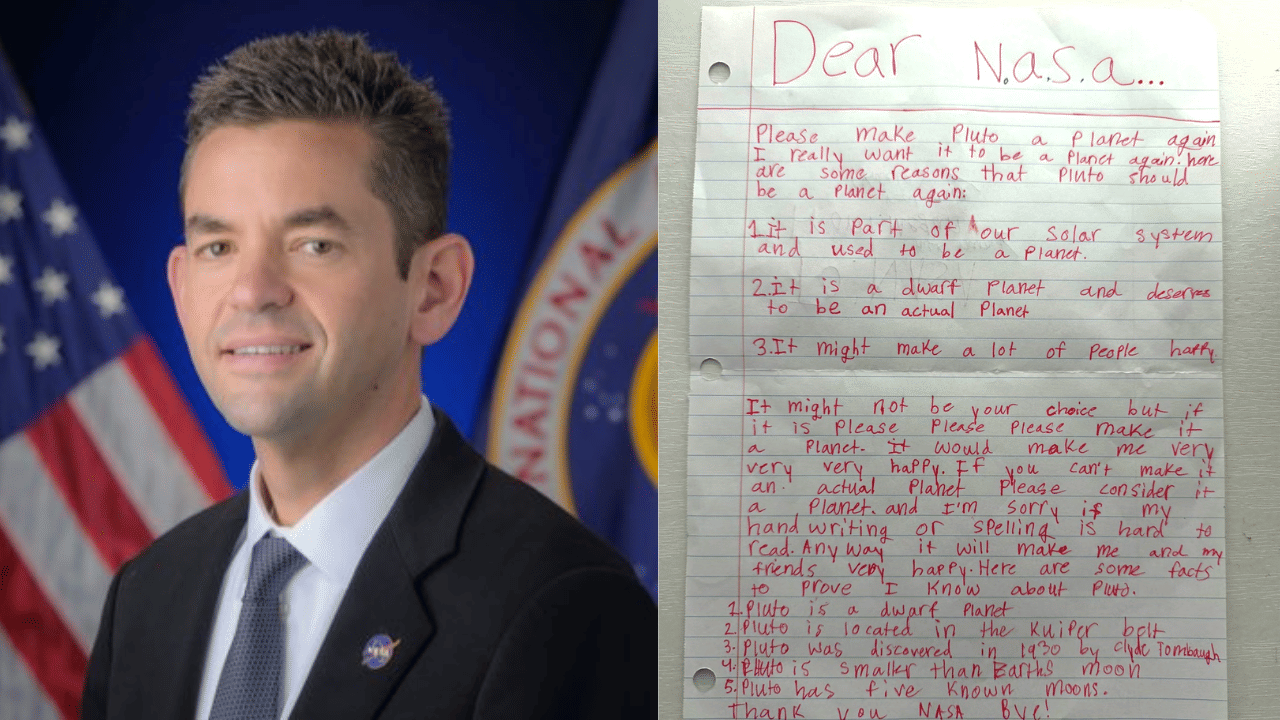 NATIONAL
NASA
Dear N.a.s.a...
Please make Pluto a Planet again
I really want it to be a Planet again. here
are some reasons that Pluto should
be a Planet again:
1.it is part of our solar system
and used to be a Planet.
2.It is a dwarf Planet and deserves
to be an actual Planet
3.It might make a lot of people happy
It might not be your choice but if
it is Please Please Please make it
a Planet. it would make me very
very very happy. If you can't make it
an actual Planet Please consider it
a Planet. and I'm sorry if my
hand writing or spelling is hard to
read. Any way it will make me and my
friends very happy. Here are some facts
to prove I know about Pluto.
1. Pluto is a dwarf Planet
2. Pluto is located in the Kuiper belt
3. Pluto was discovered in 1930 by Clyde Tombaugh
4. Pluto is smaller than Earths moon
5. Pluto has five known moons.
Thank you NASA Bye!